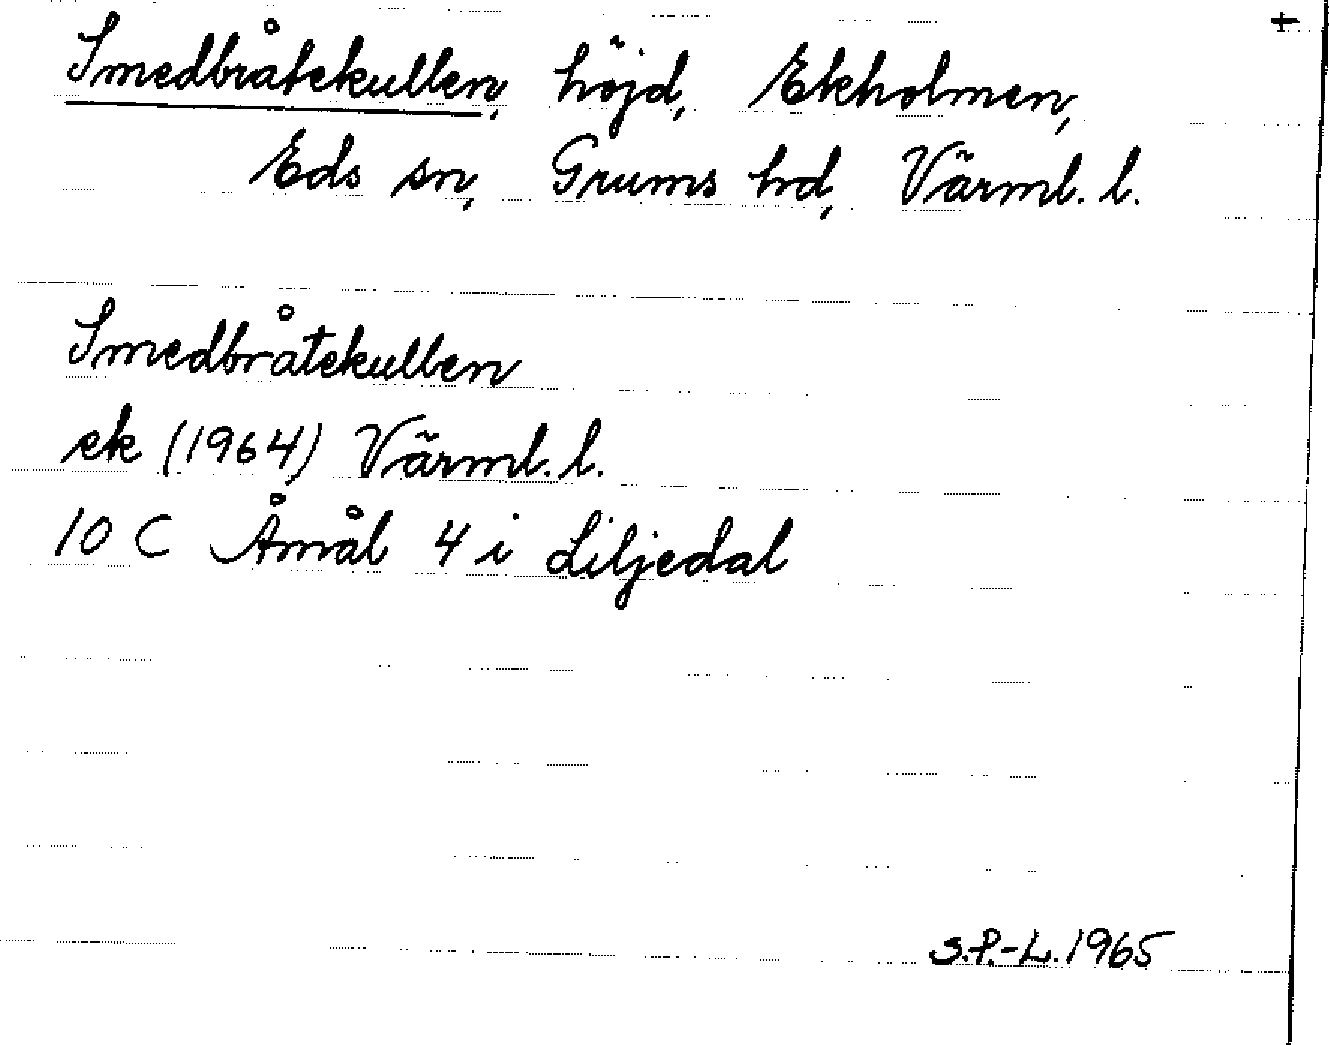 +
Smedbråtekullen, höjd, Ekholmen,
Eds sn, Grums hd, Värml. l.
Smedbråtekullen
ek (1964) Värml. l.
10 C Åmål 4 i Liljedal
S.P.-L. 1965